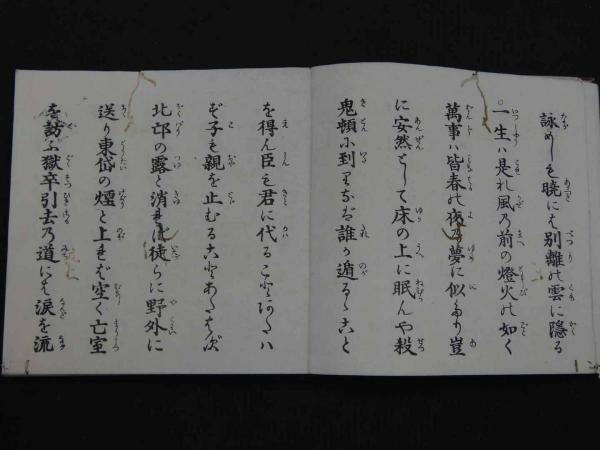 詠めしも暁にハ別離の雲に隠る
一生ハ是れ風乃前の燈火の如く
萬事ハ皆春の夜乃夢に似たり豈
に安然として床の上に眠んや殺
鬼頓に到りなバ誰か遁るゝことを
得ん臣も君に代ることあたハ
ず子も親を止むることあたはず
北邙の露と消ゆれば徒らに野外に
送り東岱の煙と上れば空く亡室
を訪ふ獄卒引去乃道にハ涙を流